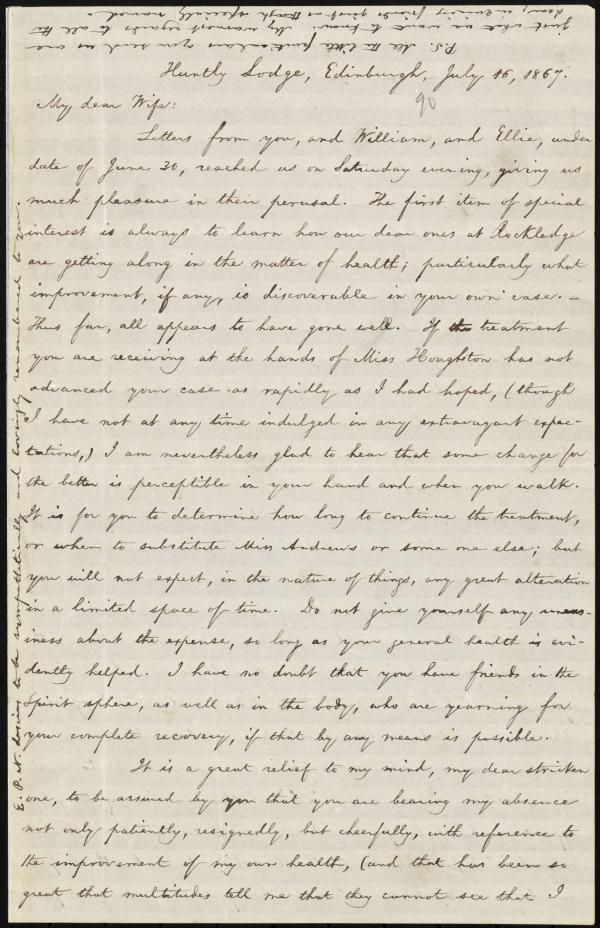 P.S. All the little particulars you send us are
just what we want to know. My warmest regards to all the
dear, inquiring friends just as though specially named.
Huntly Lodge, Edinburgh, July 16, 1867.
90
My dear Wife:
Letters from you, and William, and Ellie, under
date of June 30, reached us on Saturday evening, giving us
much pleasure in their perusal. The first item of special
interest is always to learn how our dear ones at Rockledge
are getting along in the matter of health; particularly what
improvement, if any, is discoverable in your own case. —
Thus far, all appears to have gone well. If the treatment
you are receiving at the hands of Miss Houghston has not
advanced your case as rapidly as I had hoped, (though
I have not at any time indulged in any extravagant expec-
tations,) I am nevertheless glad to hear that some change for
the better is perceptible in your hand and when you walk.
It is for you to determine how long to continue the treatment,
or when to substitute Miss Andrews or some one else; but
you will not expect, in the nature of things, any great alteration
in a limited space of time. Do not give yourself any uneas-
iness about the expense, so long as your general health is evi-
dently helped. I have no doubt that you have friends in the
Spirit sphere, as well as in the body, who are yearning for
your complete recovery, if that by any means is possible.
It is a great relief to my mind, my dear stricken
one, to be assured by you that you are bearing my absence
not only patiently, resignedly, but cheerfully, with reference to
the improvement of my own health, (and that has been so
great that multitudes tell me that they cannot see that I
E. P. N. desires to be sympathetically and lovingly remembered to you.